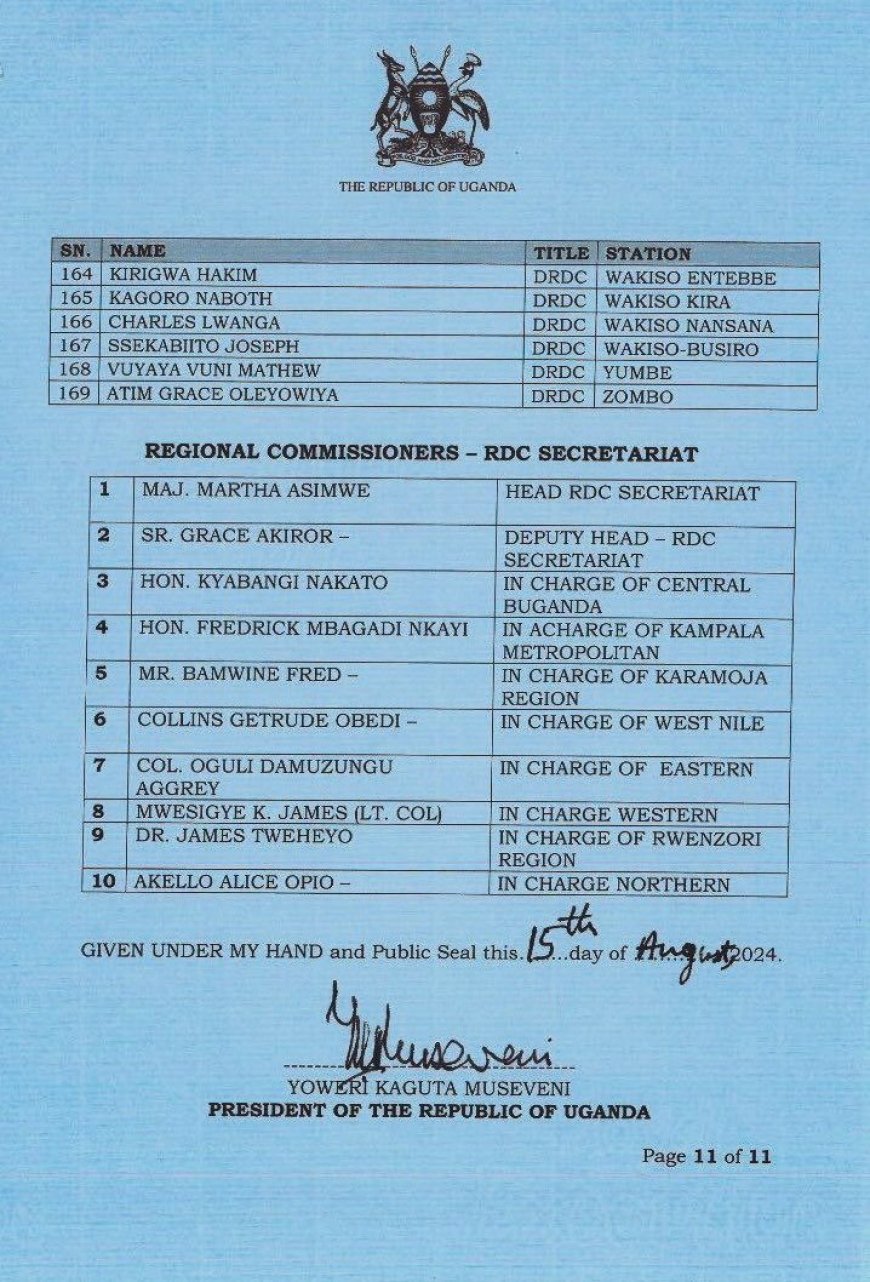 THE REPUBLIC OF UGANDA
SN. NAME TITLE STATION
164 KIRIGWA HAKIM DRDC WAKISO ENTEBBE
165 KAGORO NABOTH DRDC WAKISO KIRA
166 CHARLES LWANGA DRDC WAKISO NANSANA
167 SSEKABIITO JOSEPH DRDC WAKISO-BUSIRO
168 VUYAYA VUNI MATHEW DRDC YUMBE
169 ATIM GRACE OLEYOWIYA DRDC ZOMBO
REGIONAL COMMISSIONERS – RDC SECRETARIAT
1 MAJ. MARTHA ASIMWE HEAD RDC SECRETARIAT
2 SR. GRACE AKIROR – DEPUTY HEAD – RDC
SECRETARIAT
3 HON. KYABANGI NAKATO IN CHARGE OF CENTRAL
BUGANDA
4 HON. FREDRICK MBAGADI NKAYI IN ACHARGE OF KAMPALA
METROPOLITAN
5 MR. BAMWINE FRED – IN CHARGE OF KARAMOJA
REGION
6 COLLINS GETRUDE OBEDI – IN CHARGE OF WEST NILE
7 COL. OGULI DAMUZUNGU IN CHARGE OF EASTERN
AGGREY
8 MWESIGYE K. JAMES (LT. COL) IN CHARGE WESTERN
9 DR. JAMES TWEHEYO IN CHARGE OF RWENZORI
REGION
10 AKELLO ALICE OPIO – IN CHARGE NORTHERN
GIVEN UNDER MY HAND and Public Seal this. 15th ...day of August, 2024.
YMuseveni
YOWERI KAGUTA MUSEVENI
PRESIDENT OF THE REPUBLIC OF UGANDA
Page 11 of 11